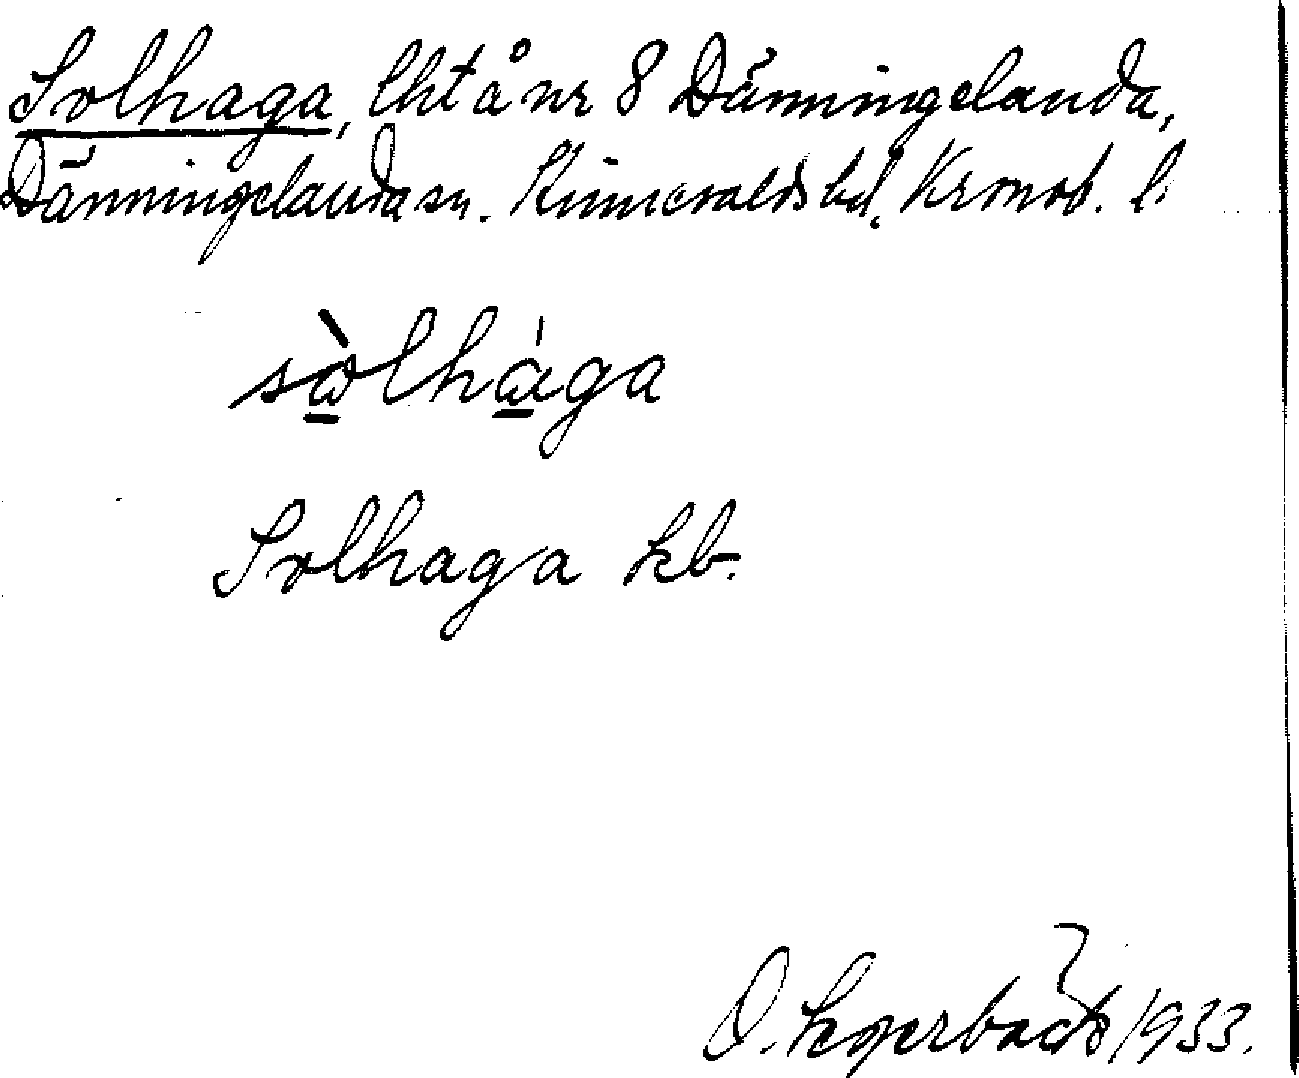 Solhaga, lht å nr 8 Dänningelanda,
Dänningelanda sn. Kinnevalds hd, Kronob. l.
sὼ̲lhά̲ga
Solhaga kb.
O. 1933.